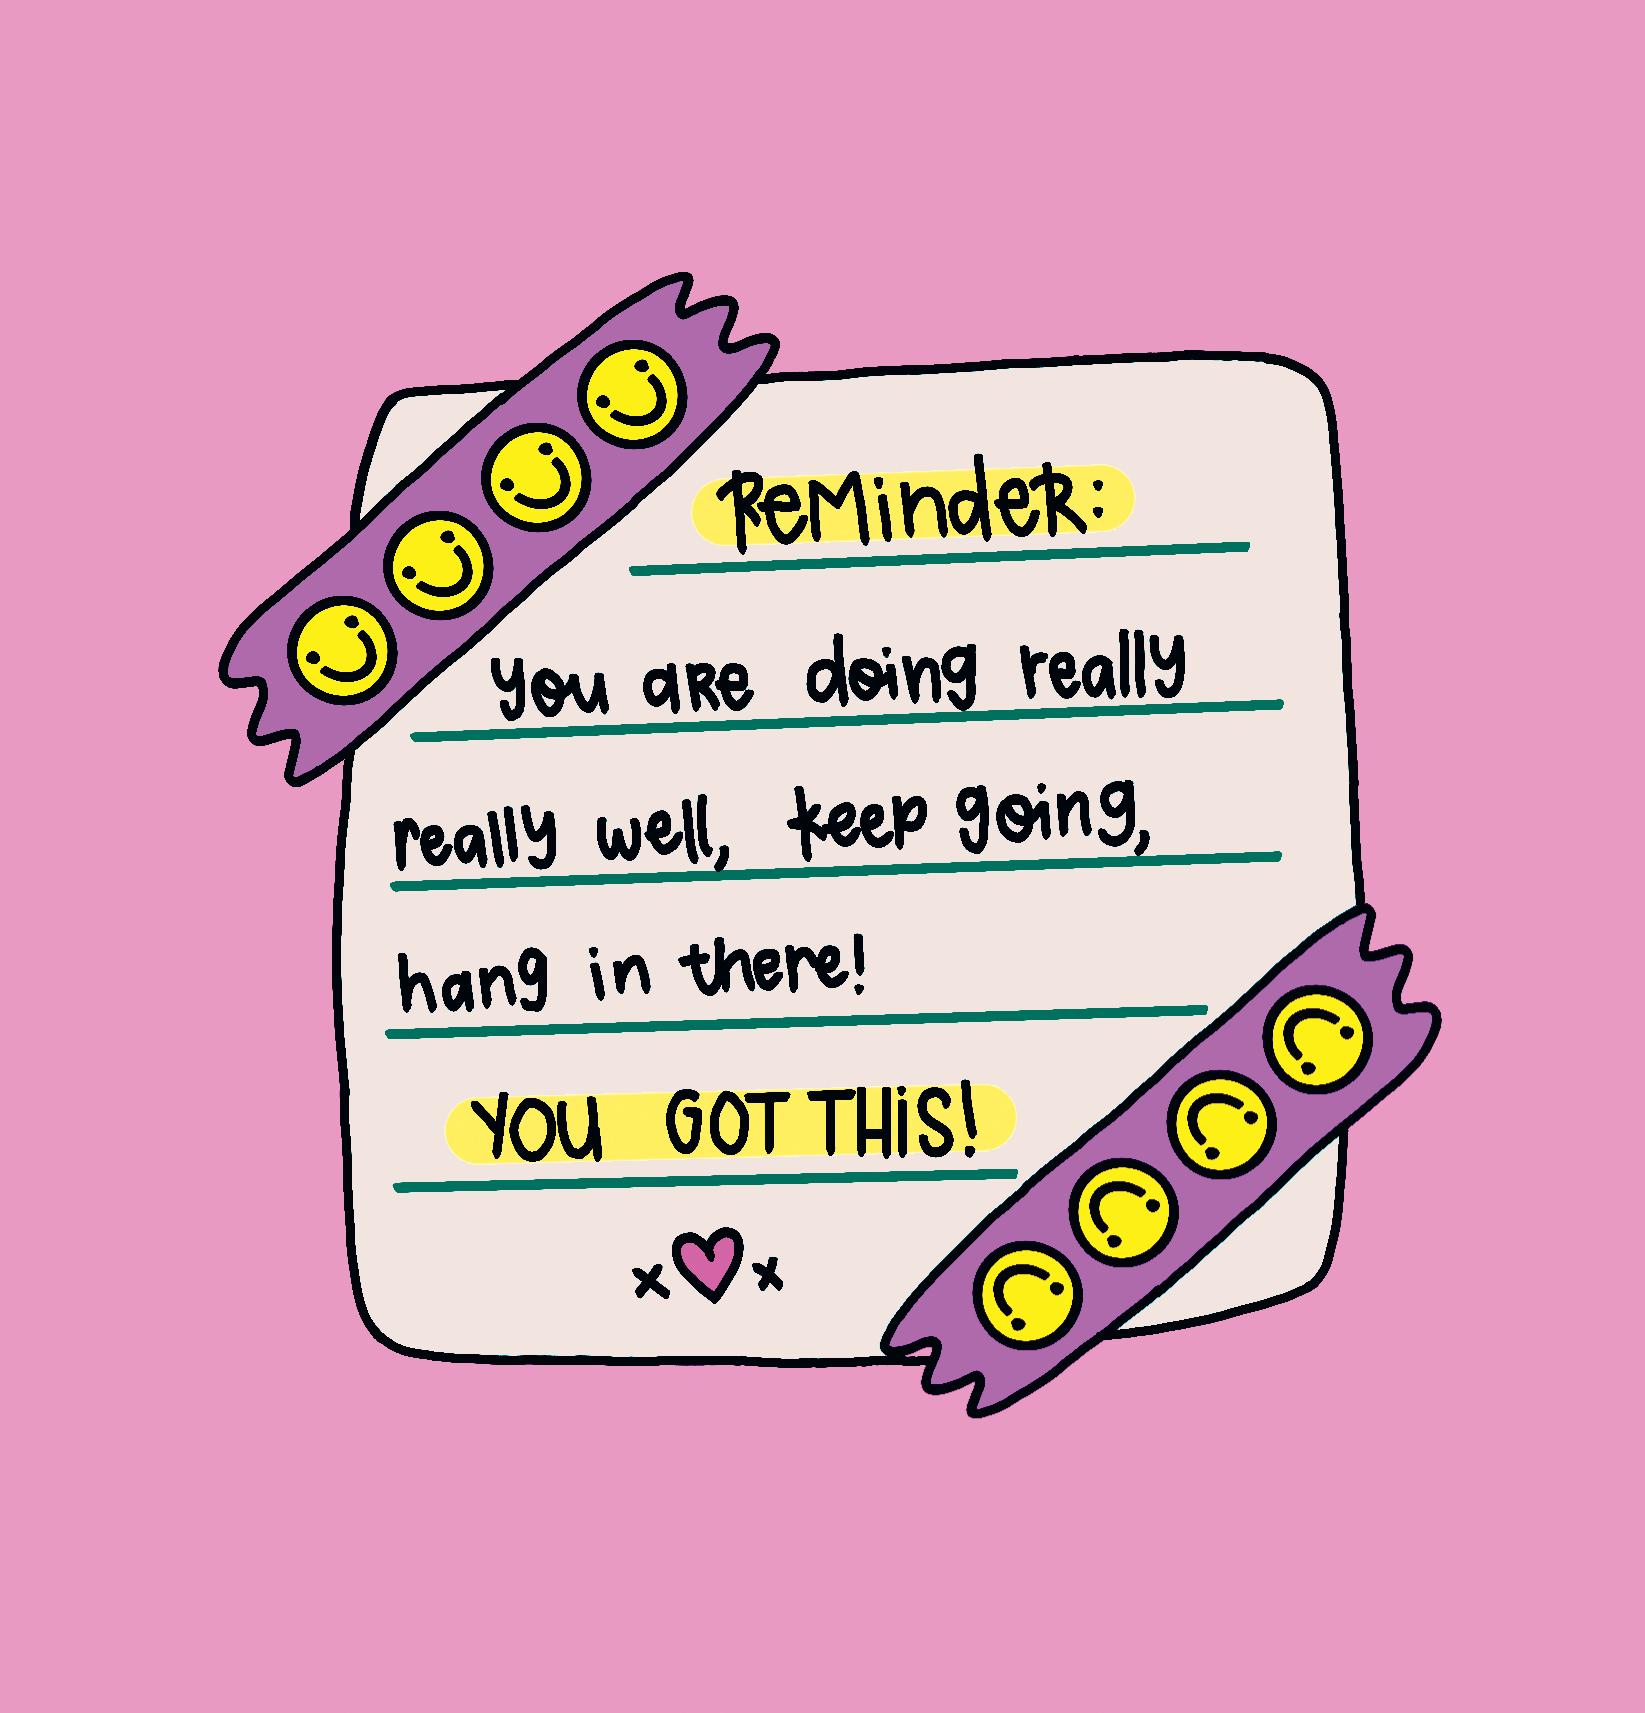 ReMindeR:
you aRe doing really
really well, keep going,
hang in there!
YOU GOT THiS!
x x